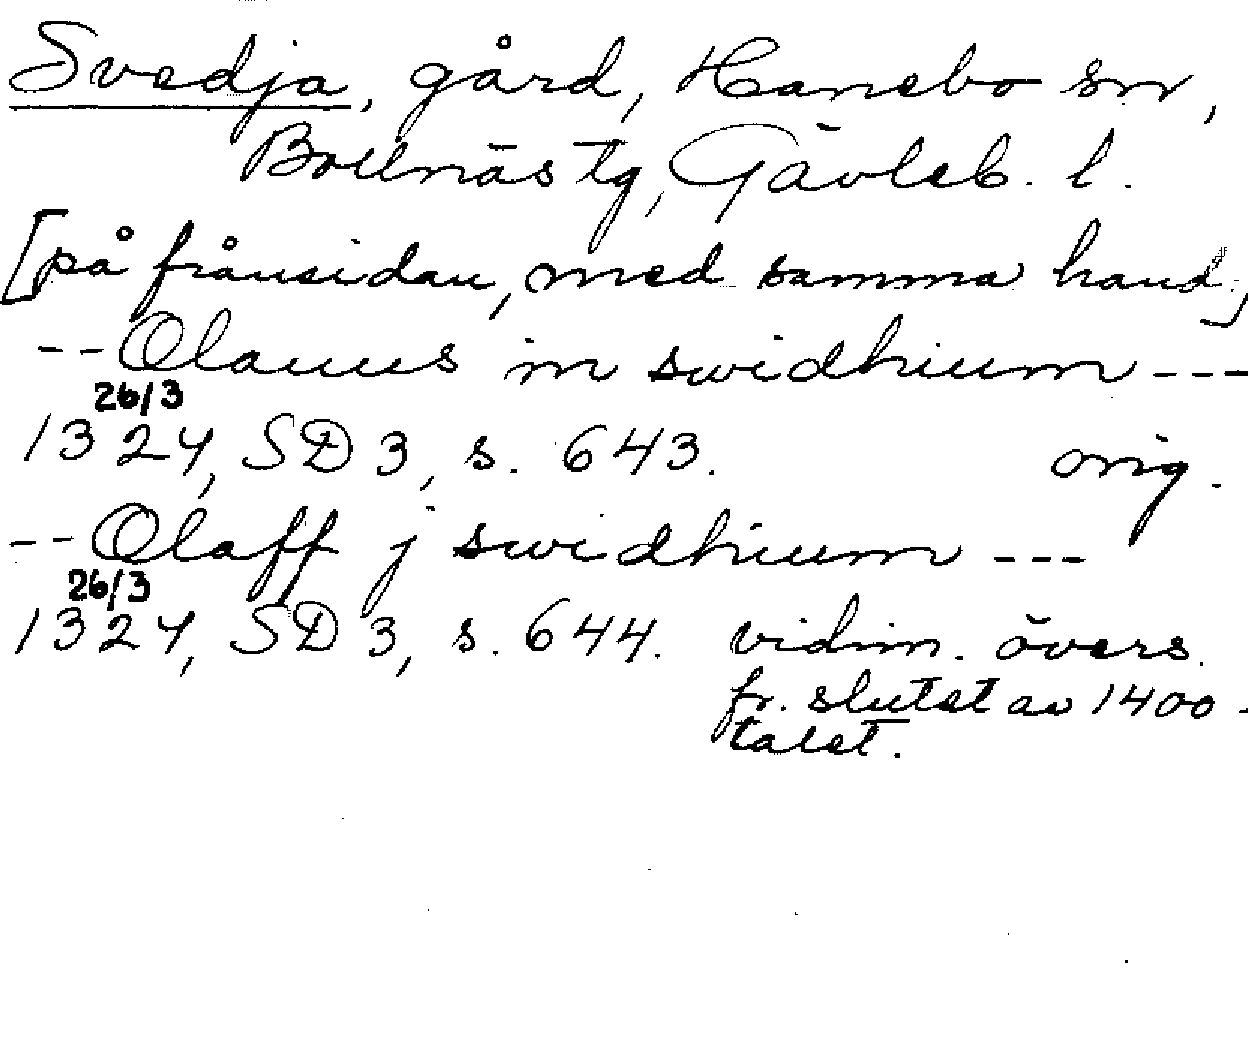 Svedja, gård, Hanebo sn,
Bollnäs tg, Gävleb. l.
[på frånsidan, med samma hand,]
-- Olauus in swidhium ---
26/3
1324, SD 3, s. 643. orig.
-- Olaff j swidhium ---
26/3
1324, SD 3, s. 644. vidim. övers.
fr. slutet av 1400-
talet.